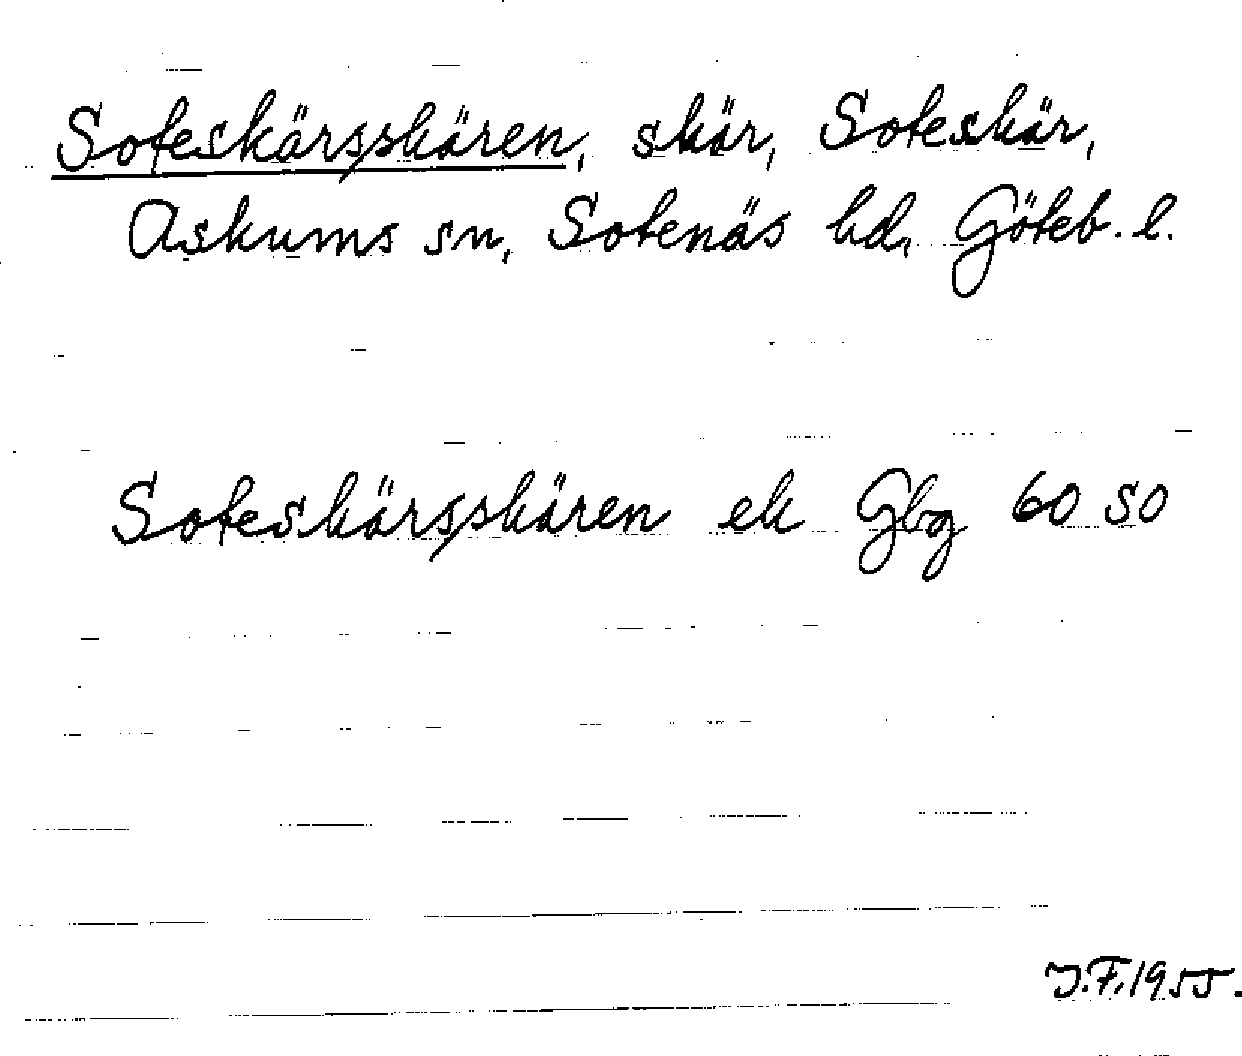 Soteskärsskären, skär, Soteskär,
Askums sn, Sotenäs hd, Göteb. l.
Soteskärsskären ek Gbg 60 SO
J.F. 1955.